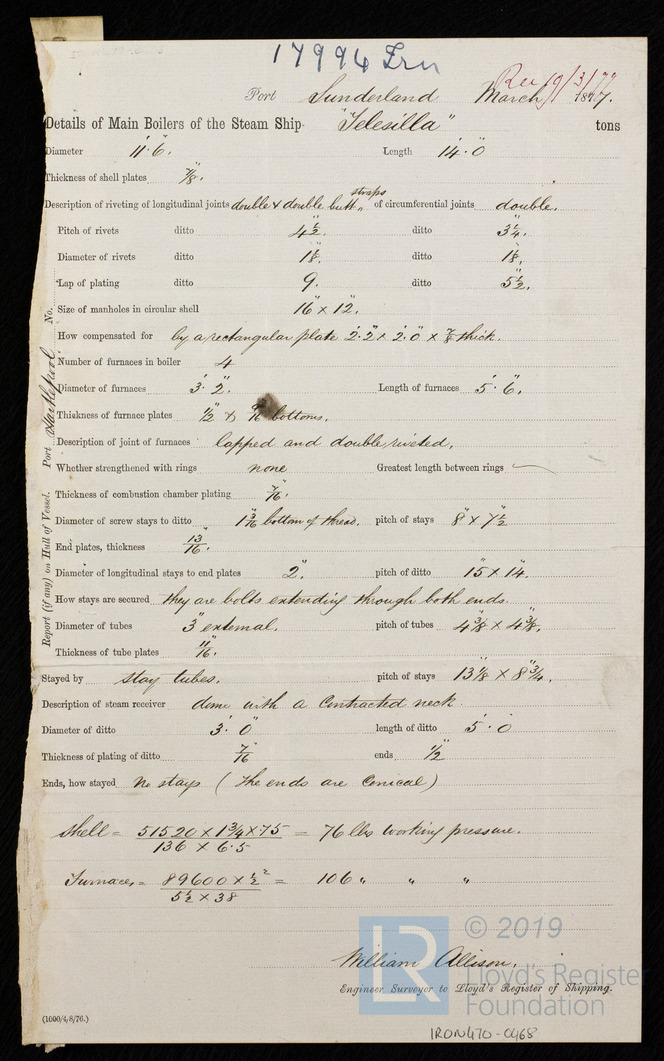 17994 Irn
Rec 19/3/77
Port Sunderland March 1877.
Details of Main Boilers of the Steam Ship "Telesilla" tons
Diameter 11'.6". Length 14'.0"
Thickness of shell plates 7/8".
Description of riveting of longitudinal joints double & double butt straps of circumferential joints double.
Pitch of rivets ditto 4 1/2". ditto 3 1/4".
Diameter of rivets ditto 1 1/8". ditto 1 1/8".
Lap of plating ditto 9". ditto 5 1/2".
Size of manholes in circular shell 16" x 12".
How compensated for by a rectangular plate 2'.2" x 2'.0" x 7/8" thick.
Number of furnaces in boiler 4
Diameter of furnaces 3'.2". Length of furnaces 5'.6".
Thickness of furnace plates 1/2" & 9/16" bottoms.
Description of joint of furnaces lapped and double riveted.
Whether strengthened with rings none Greatest length between rings —
Thickness of combustion chamber plating 7/16".
Diameter of screw stays to ditto 1 3/16" bottom of thread. pitch of stays 8" x 7 1/2"
End plates, thickness 13/16".
Diameter of longitudinal stays to end plates 2". pitch of ditto 15" x 14".
How stays are secured they are bolts extending through both ends.
Diameter of tubes 3" external. pitch of tubes 4 3/8" x 4 3/8".
Thickness of tube plates 11/16".
Stayed by stay tubes. pitch of stays 13 1/8" x 8 3/4".
Description of steam receiver dome with a contracted neck.
Diameter of ditto 3'.0" length of ditto 5'.0
Thickness of plating of ditto 7/16" ends 1/2"
Ends, how stayed no stays (the ends are conical)
Shell = 51520 x 1 3/4 x .75 / 136 x 6.5 = 76 lbs working pressure.
Furnaces = 89600 x 1/2² / 5 1/2 x 38 = 106 " " "
William Allison.
Engineer Surveyor to Lloyd's Register of Shipping.
(1000/4/8/76.)
Report (if any) on Hull of Vessel. Port Hartlepool No.
LR © 2019
Lloyd's Register
Foundation
IRON470-0468